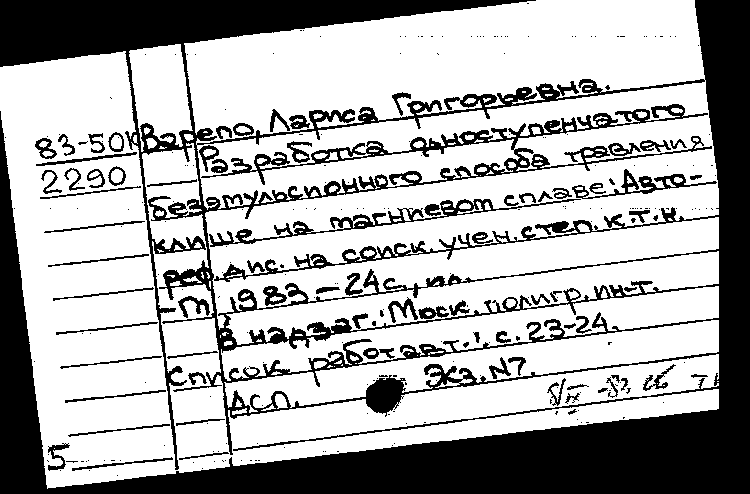 83-50К Варепо, Лариса Григорьевна.
2290 Разработка одноступенчатого
безэмульсионного способа травления
клише на магниевом сплаве: Авто-
реф. дис. на соиск. учен. степ. к.т.н.
-М. 1983.- 24с., ил.
В надзаг.: Моск. полигр. ин-т.
Список работ авт.: с. 23-24.
ДСП. Экз. N7.
5